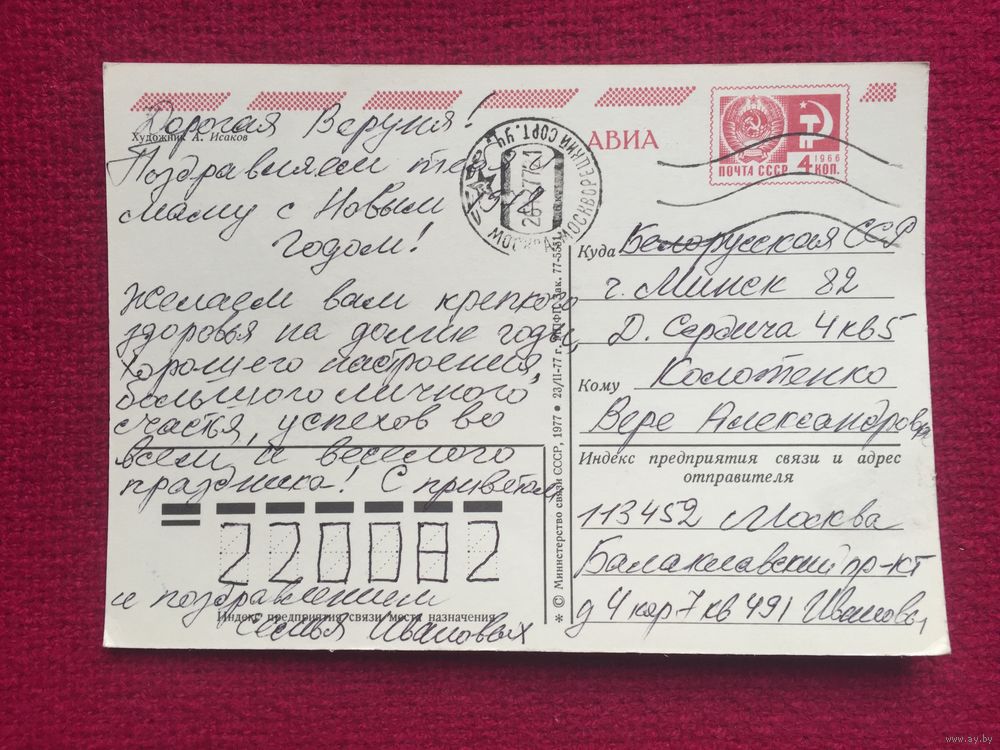 Дорогая Веруня!
Художник А. Исаков
Поздравляем тебя,
маму с Новым
Годом!
Желаем вам крепкого
здоровья на долгие годы,
хорошего настроения,
большого личного
счастья, успехов во
всем, и веселого
праздника! С приветом
220082
и поздравлением
Индекс предприятия связи места назначения
Семья Ивановых
* © Министерство связи СССР, 1977 • 23/II-77 г. Зак. 77-5551.
АВИА
ПОЧТА СССР 4 КОП. 1966
МОСКВА МОСКВОРЕЦКИЙ СОРТ. УЧ
Куда Белорусская ССР
г. Минск 82
Д. Сердича 4 кв 5
Кому Колотенко
Вере Александровне
Индекс предприятия связи и адрес
отправителя
113452 Москва
Балаклавский пр-кт
д 4 кор 7 кв 491 Ивановы
www.ay.by